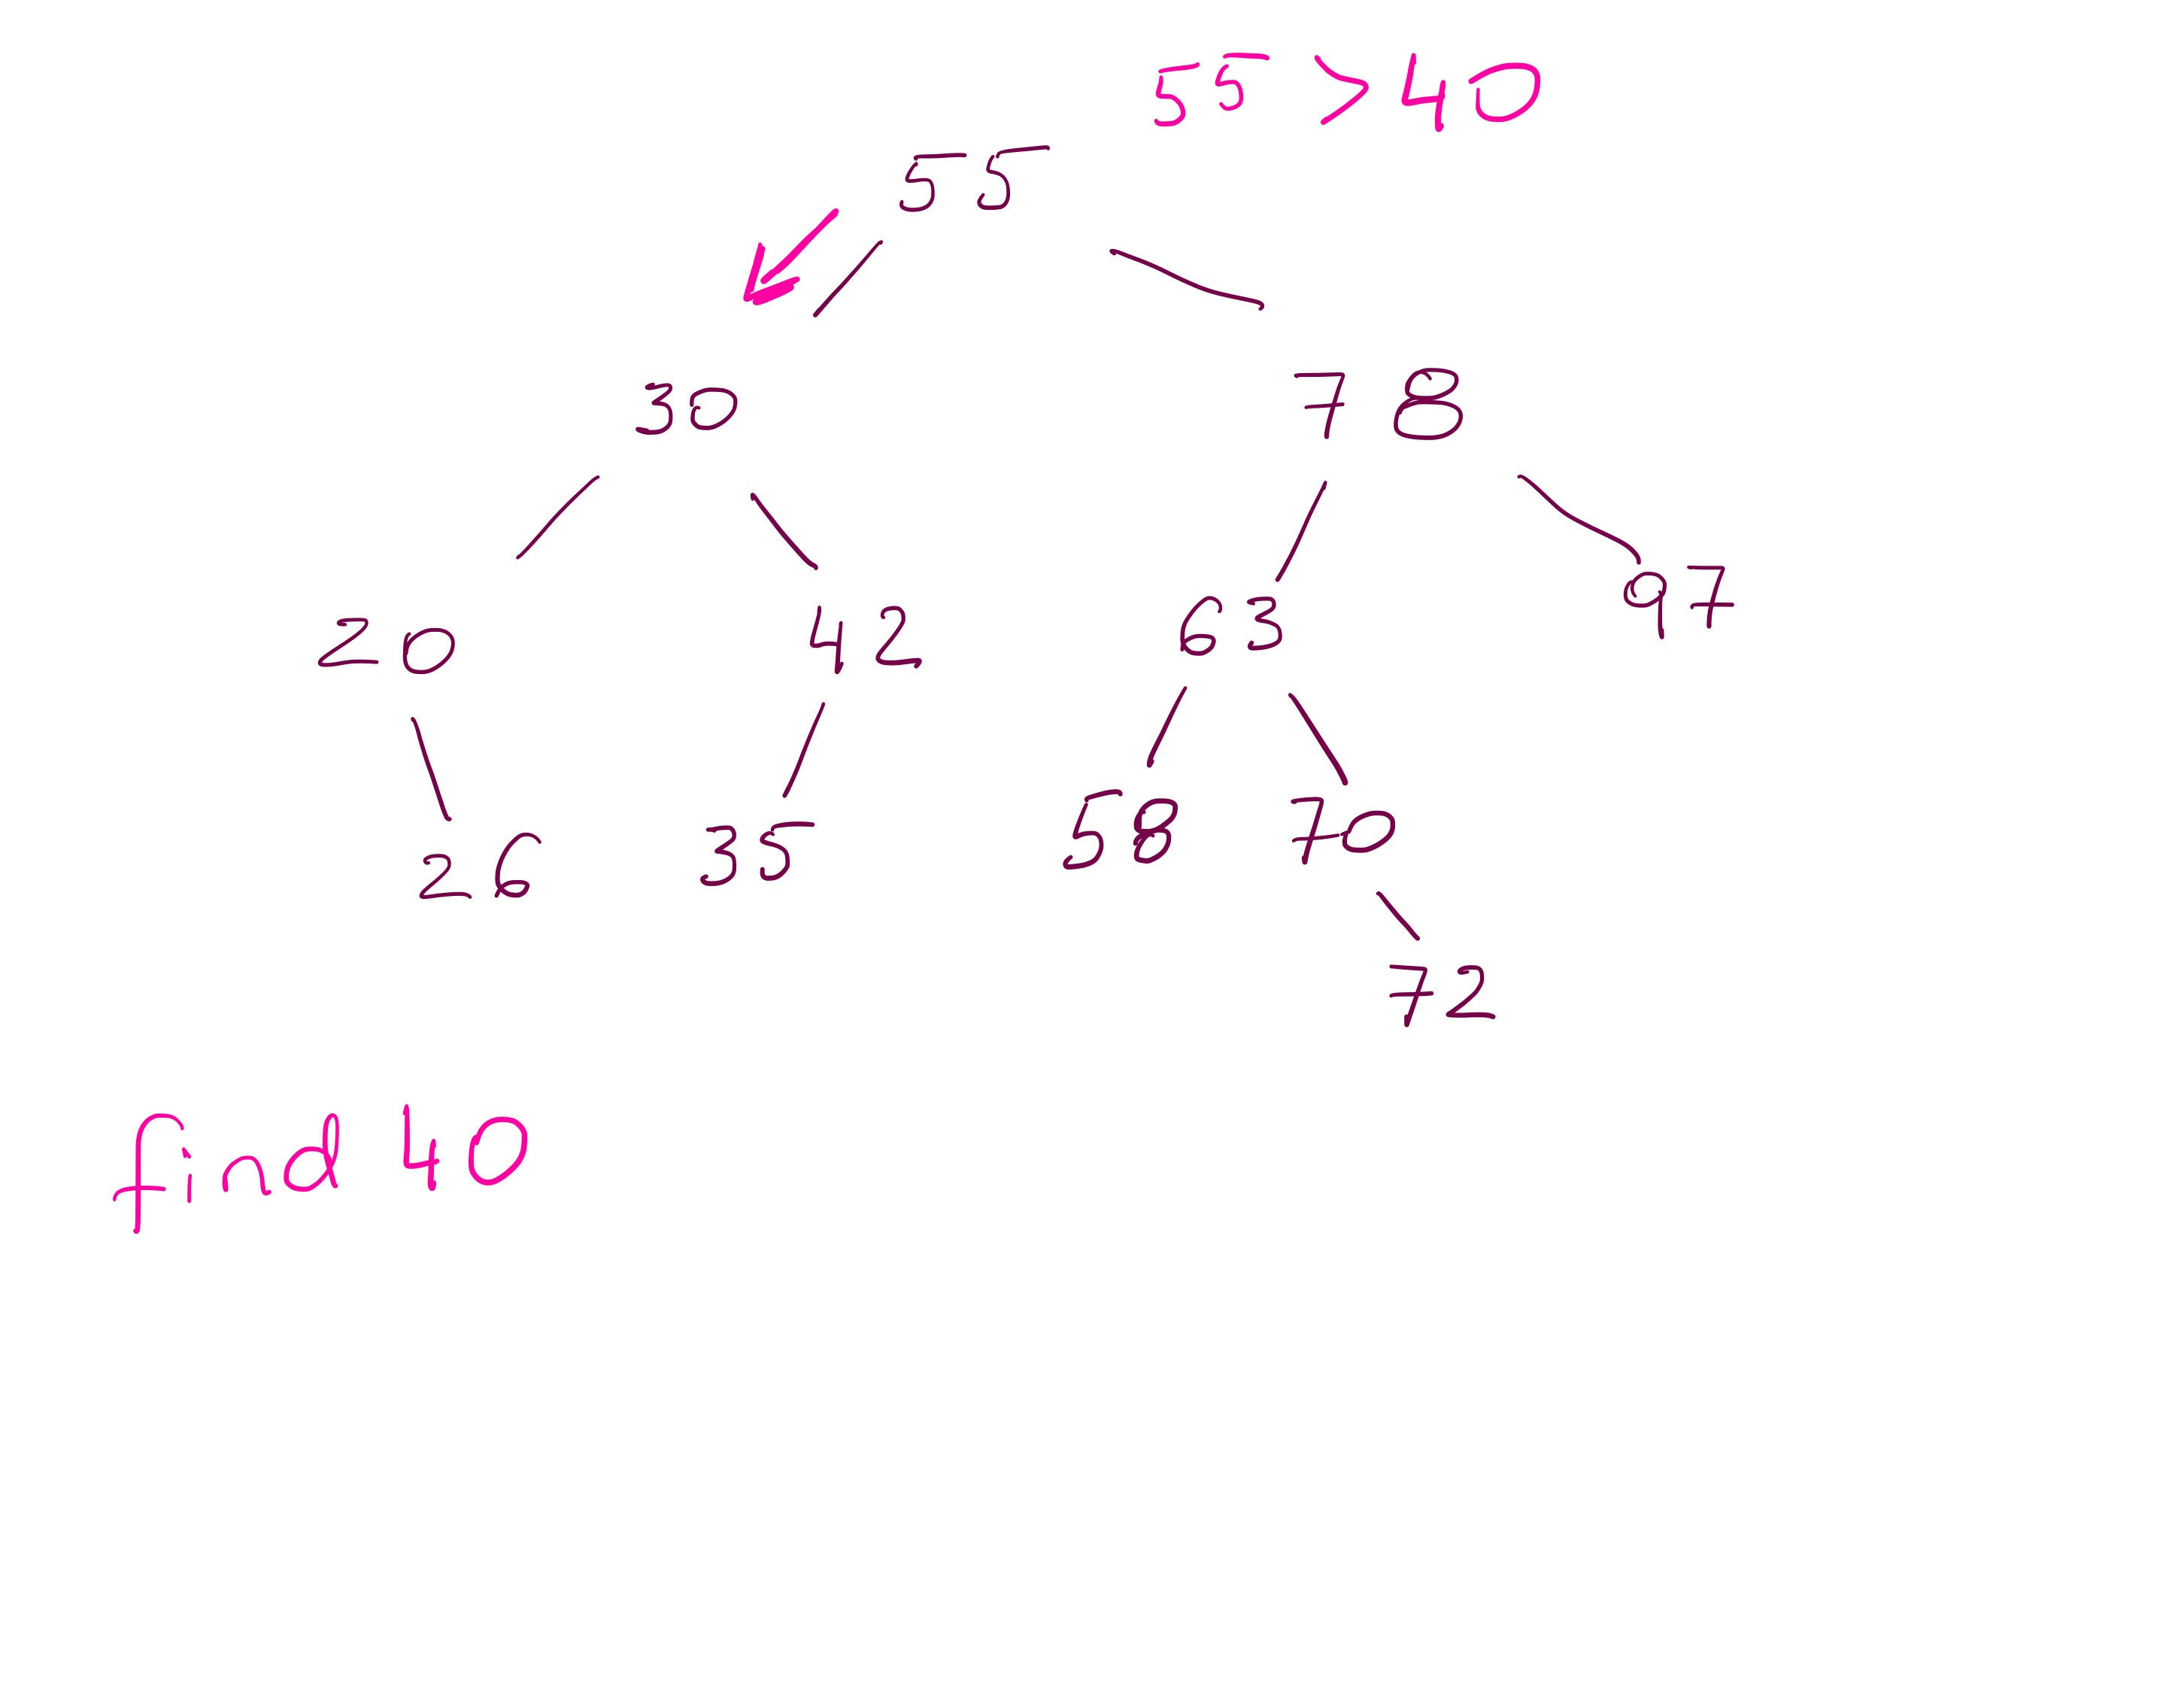 55 > 40
55
30 78
20 42 63 97
26 35 58 70
72
find 40